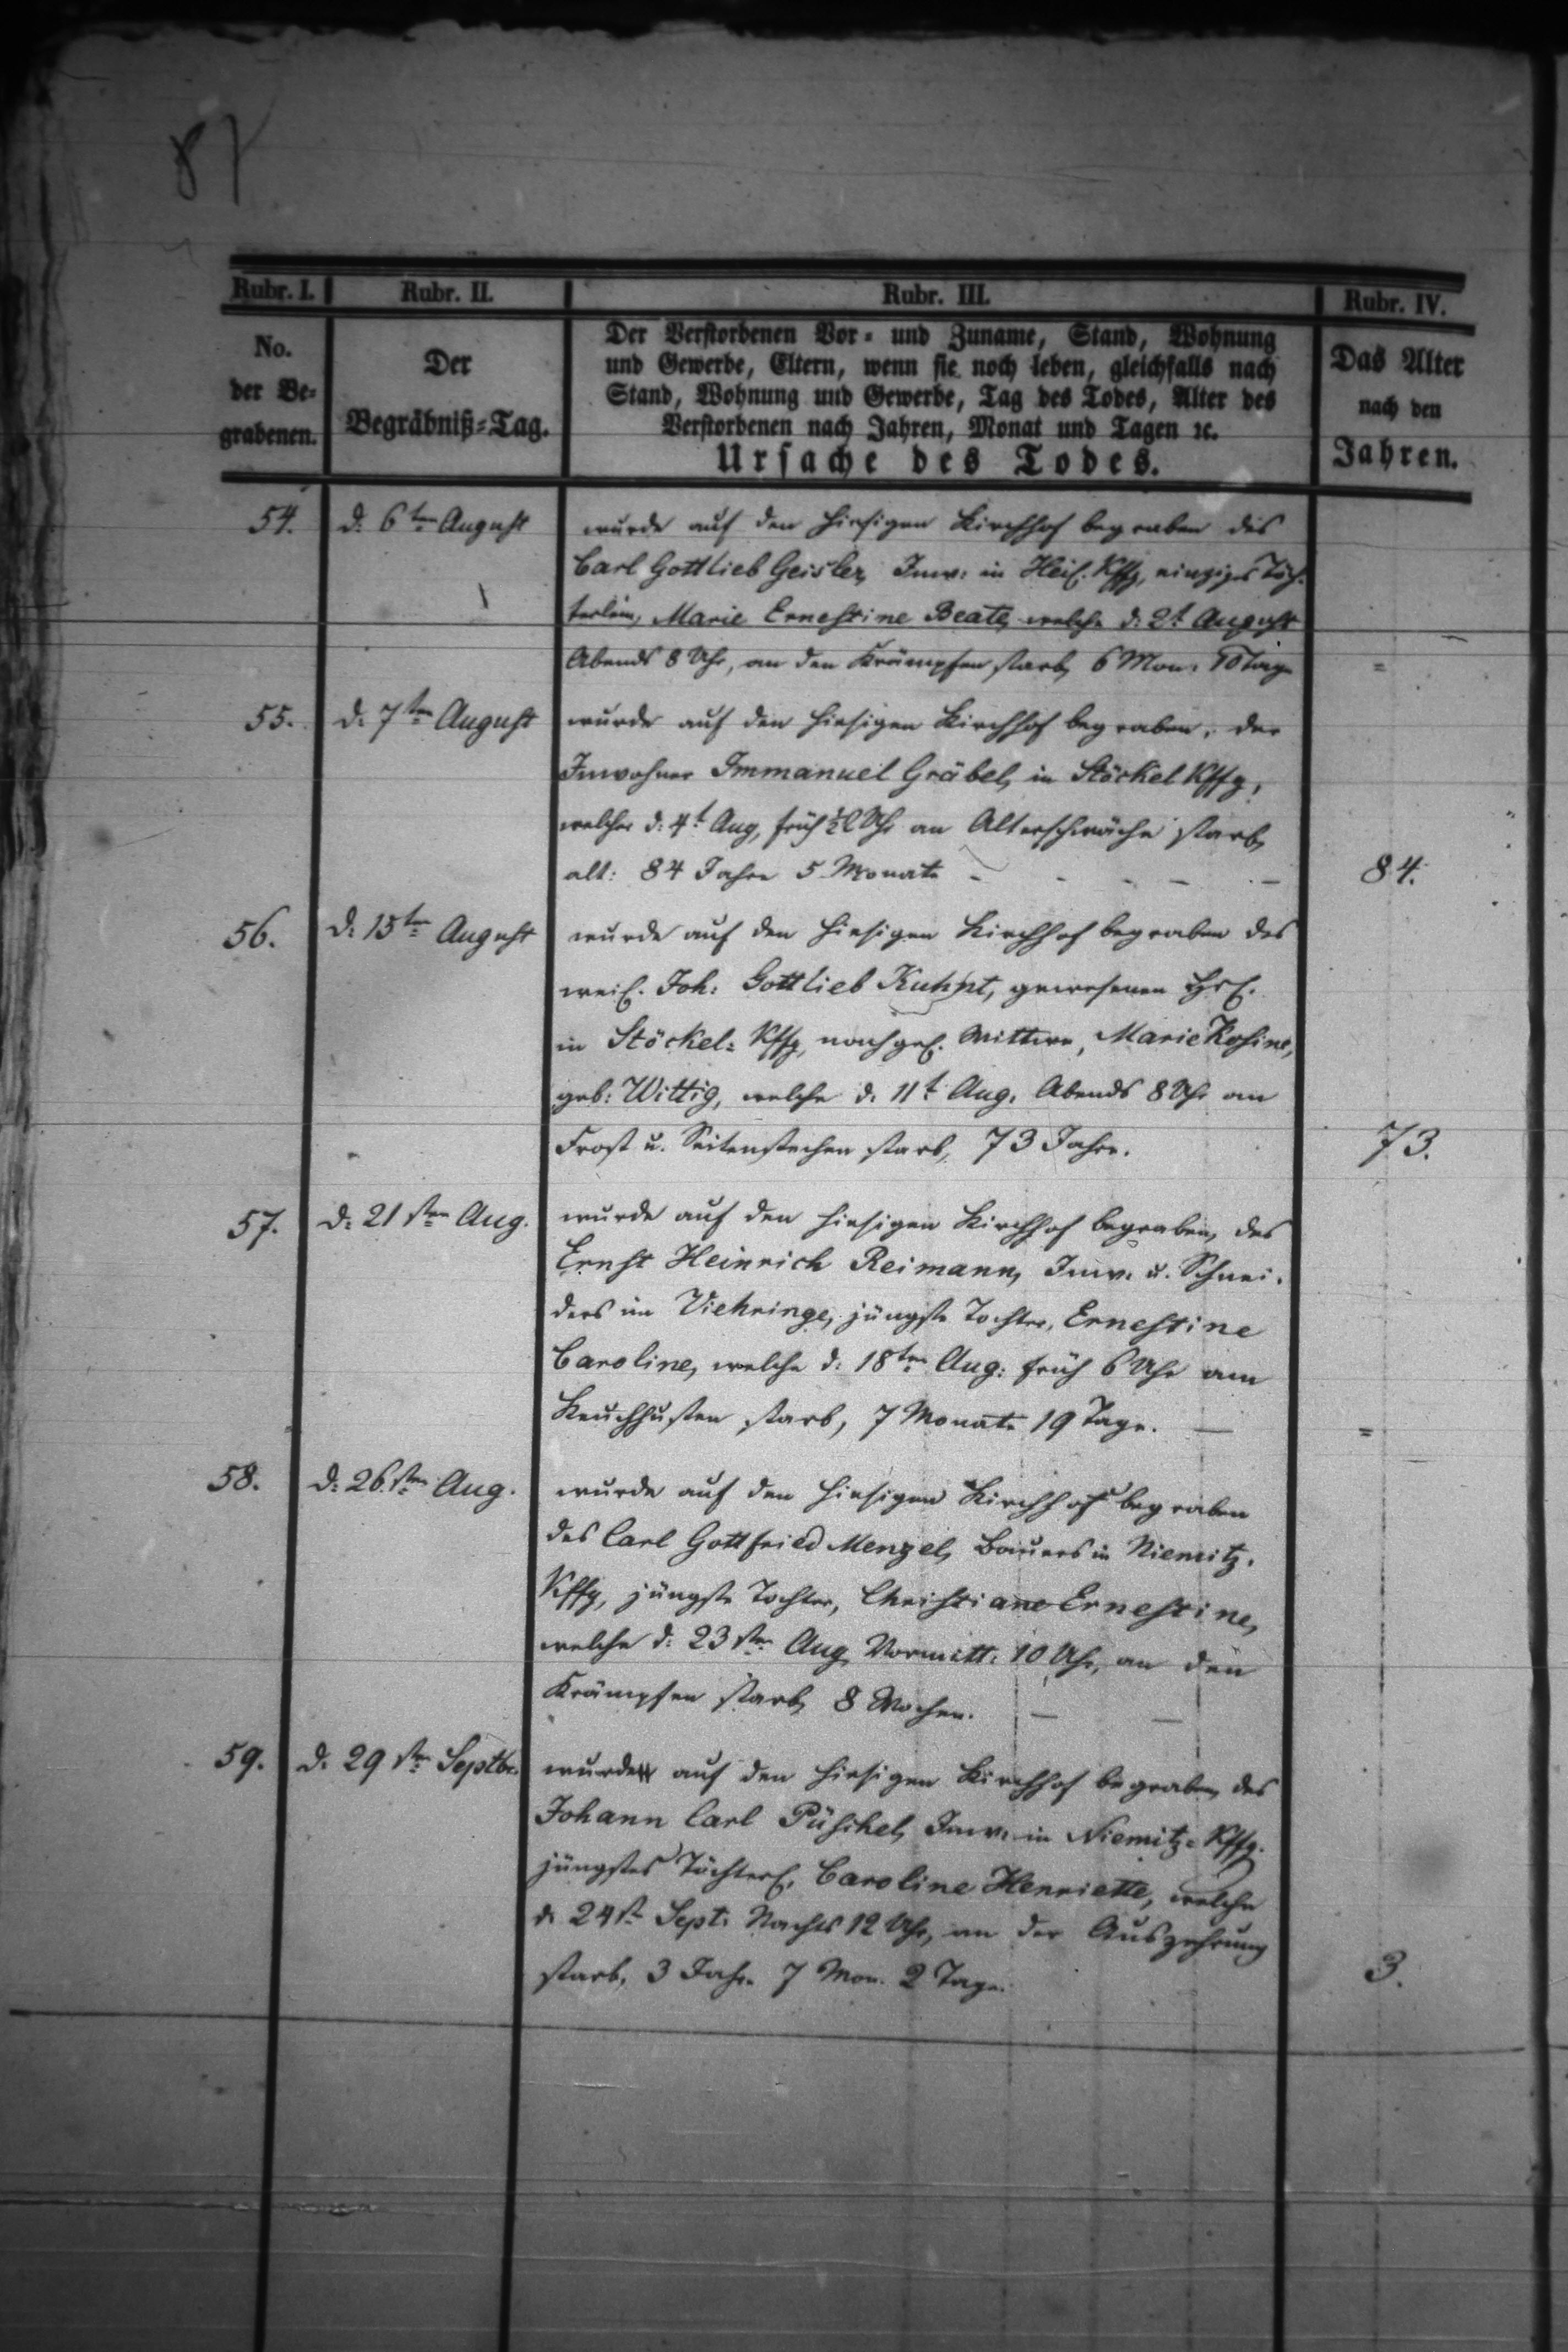 87
Rubr. I. Rubr. II. Rubr. III. Rubr. IV.
No. der Be- grabenen.
Der Begräbniß-Tag.
Der Verstorbenen Vor- und Zuname, Stand, Wohnung
und Gewerbe, Eltern, wenn sie noch leben, gleichfalls nach
Stand, Wohnung und Gewerbe, Tag des Todes, Alter des
Verstorbenen nach Jahren, Monat und Tagen ꝛc.
Ursache des Todes.
Das Alter nach den Jahren.
54. d. 6ten August wurde auf den hiesigen Kirchhof begraben des
Carl Gottlieb Geisler, Inw: in Heil. Kffg, einziges Töch-
terlein, Marie Ernestine Beate, welche d. 2t August
Abends 8 Uhr, an den Krämpfen starb, 6 Mon. 10 Tage =
55. d. 7ten August wurde auf den hiesigen Kirchhof begraben, der
Inwohner Immanuel Gräbel, in Stöckel Kffg,
welcher d: 4t Aug, früh Uhr an Alterschwäche starb,
alt: 84 Jahre 5 Monate - - - - - 84.
56. d. 15ten August wurde auf den hiesigen Kirchhof begraben des
weil. Joh: Gottlieb Kuhnt, gewesenen Hsl.
in Stöckel= Kffg, nachgel. Wittwe, Marie Rosine,
geb: Wittig, welche d. 11t Aug. Abends 8 Uhr an
Frost u. Seitenstechen starb, 73 Jahre. 73.
57. d. 21sten Aug. wurde auf den hiesigen Kirchhof begraben, des
Ernst Heinrich Reimann, Inw. u. Schnei-
ders im Viehringe, jüngste Tochter, Ernestine
Caroline, welche d: 18ten Aug: früh 6 Uhr am
Keuchhusten starb, 7 Monate 19 Tage. — =
58. d. 26sten Aug. wurde auf den hiesigen Kirchhof begraben
des Carl Gottfried Menzel, Bauers in Niemitz-
Kffg, jüngste Tochter, Christiane Ernestine,
welche d: 23sten Aug, Vormitt: 10 Uhr, an den
Krämpfen starb, 8 Wochen. — —
59. d. 29sten Septbr. wurde auf den hiesigen Kirchhof begraben, des
Johann Carl Püschel, Inw. in Niemitz= Kffg.
jüngstes Töchterl. Caroline Henriette, welche
d. 24st Sept: Nachts 12 Uhr, an der Auszehrung
starb, 3 Jahre 7 Mon. 2 Tage. 3.